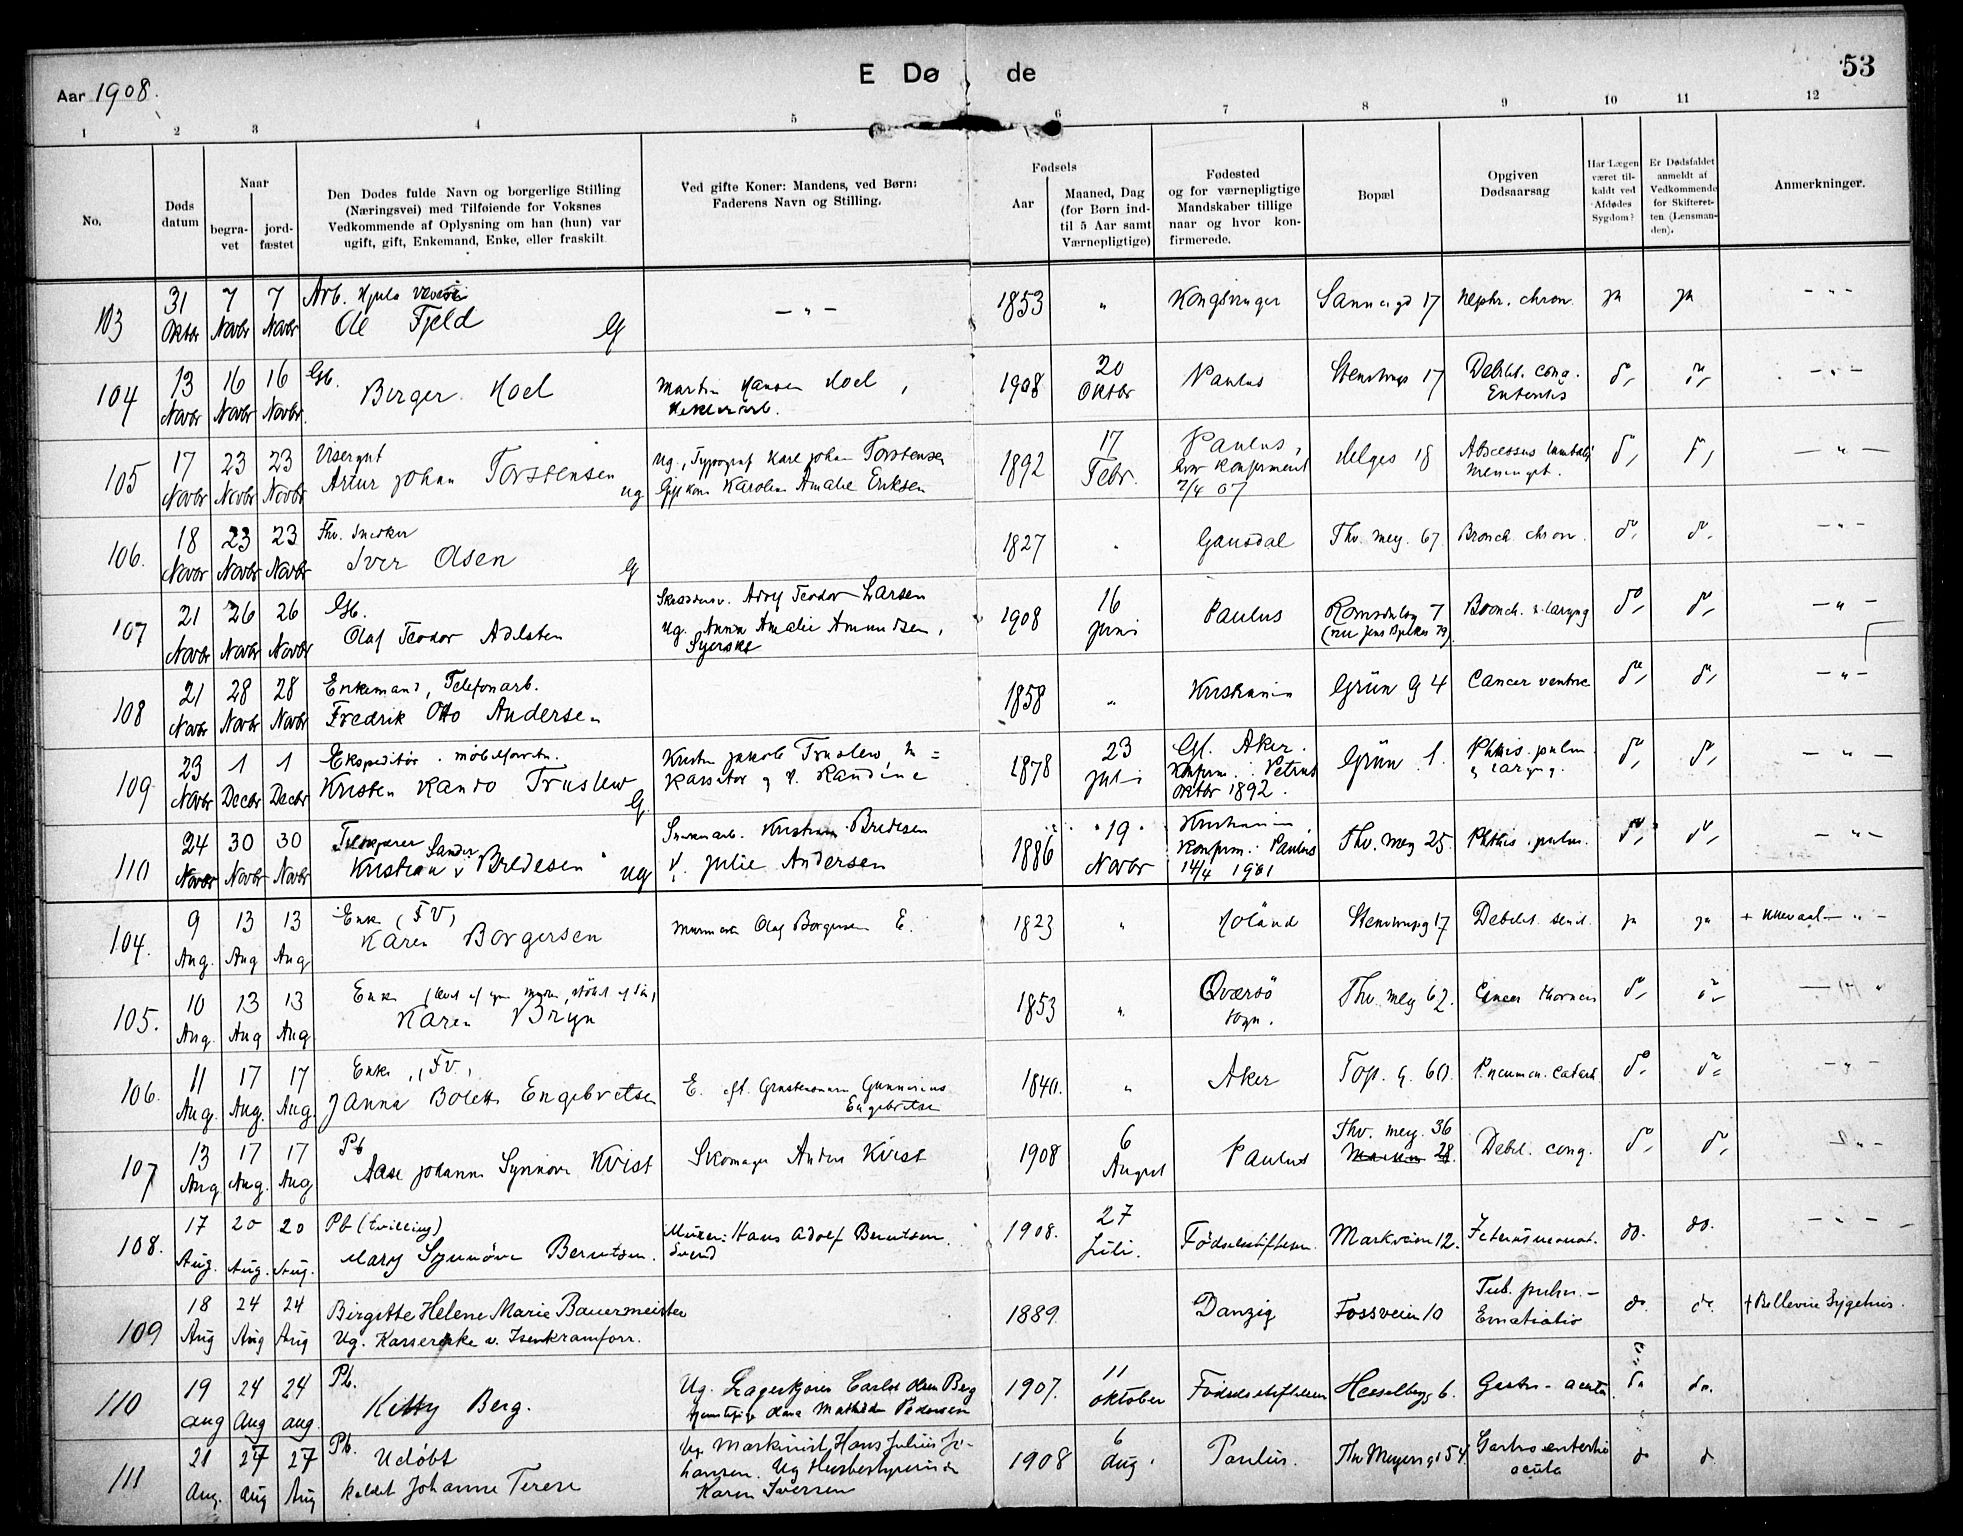 E Dø de
53
Aar 1908.
1 2 3 4 5 6 7 8 9 10 11 12
No.
Døds datum
Naar
begra-vet
jord-fæstet
Den Dødes fulde Navn og borgerlige Stilling
(Næringsvei) med Tilføiende for Voksnes
Vedkommende af Oplysning om han (hun) var
ugift, gift, Enkemand, Enke, eller fraskilt
Ved gifte Koner: Mandens, ved Børn:
Faderens Navn og Stilling.
Fødsels
Aar
Maaned, Dag
(for Børn ind-
til 5 Aar samt
Værnepligtige)
Fødested
og for værnepligtige
Mandskaber tillige
naar og hvor kon-
firmerede.
Bopæl
Opgiven
Dødsaarsag
Har Lægen
været til-
kaldt ved
Afdødes
Sygdom?
Er Dødsfaldet
anmeldt af
Vedkommende
for Skifteret-
ten (Lensman-
den).
Anmerkninger.
103 31 Oktbr 7 Novbr 7 Novbr Arb.
Ole Fjeld G — " — 1853 " Kongsvinger Sannergd 17 Nephr. chron. ja ja — " —
104 13 Novbr 16 Novbr 16 Novbr Gb.
Birger Hoel
Martin Hansen Hoel,
1908 20 Oktbr Paulus Stenstrups 17 Debil. cong.
Enteritis do do — " —
105 17 Novbr 23 Novbr 23 Novbr Visergut
Artur Johan Torstensen ug
Ug. Typograf Karl Johan Torstensen
Karoline Amalie Eriksen
1892 17 Febr. Paulus,
konfirmeret
7/4 07
Helges 18 Abscessus
Meningit. do do — " —
106. 18 Novbr 23 Novbr 23 Novbr Fhv. Snedker
Iver Olsen G
1827 " Gausdal Thv. mey. 67 Bronch. chron. do do — " —
107 21 Novbr 26 Novbr 26 Novbr Gb.
Olaf Teodor Adelsten
Adolf Teodor Larsen
Ug. Anna Amalie Amundsen,
Syerske
1908 16 Juni Paulus Romsdalsg 7
(nu Jens Bjelkes 79)
Bronch. & laryng do do — " —
108 21 Novbr 28 Novbr 28 Novbr Enkemand, Telefonarb.
Fredrik Otto Andersen
1858 " Kristiania Grün G 4 Cancer ventric do do — " —
109 23 Novbr 1 Decbr 1 Decbr Ekspeditør. møbelforretn.
Kristen Kando Truslew G.
Jakob Truslew,
1878 23 Juli Gl. Aker.
Konfirm.: Petrus
Oktbr 1892.
Grün. 1. Phthis. pulm.
& laryng. do do — " —
110 24 Novbr 30 Novbr 30 Novbr
Kristian Sander Bredesen ug
Kristian Bredesen
Julie Andersen
1886 19 Novbr Kristiania,
Konfirm.: Paulus
14/4 1901
Thv. Mey 25. Phthis. pulm. do do — " —
104. 9 Aug. 13 Aug 13 Aug Enke (FV)
Karen Borgersen
Olaf Borgersen E.
1823 " Høland Stenstrupsg 17 Debilit. senil. ja ja + Ullevaal — " —
105. 10 Aug. 13 Aug 13 Aug Enke
Karen Bryn
1853 "
sogn.
Thv. mey 62. Cancer do do — " —
106. 11 Aug. 17 Aug. 17 Aug. Enke, (FV)
Janna Bolette Engebretsen
E. eft. Gunnerius
Engebretsen
1840. " Aker Top. g. 60. Pneumon. Catarh. do do — " —
107 13 Aug 17 Aug. 17 Aug Pb
Aase Johanne Synnøve Kvist
Skomager Anders Kvist
1908 6 August Paulus Thv. mey. 36
28. Debil. cong. do do — " —
108. 17 Aug. 20 Aug. 20 Aug. Pb (tvilling)
Mary Synnøve Berntsen.
Murer: Hans Adolf Berntsen.
Svend
1908. 27 Juli. Fødselsstiftelsen. Markveien 12. Icterus neonat. do. do. — " —
109 18 Aug 24 Aug 24 Aug Birgitte Helene Marie Bauermeister
Ug. Kassererske v. Isenkramforr.
1889. Danzig Fossveien 10 Tub. pulm. —
do. do. + Bellevue Sygehus.
110 19 aug 24 aug 24 aug. Pb.
Kitty Berg.
Ug. Lagerkjører Carlot Olsen Berg
Mathilde Pedersen
1907. 11 oktober Fødselsstiftelsen Hesselbergs 6. Gastr. acuta do. do.
111 21 Aug. 27 aug 27 Aug Pb. Udøbt
kaldet Johanne Terese
Ug Maskinist Hans Julius Jo-
hansen. Ug Husbestyrerinde
Karen Iversen
1908 6 aug. Paulus. Thv Meyersg 54 Gastro enteritis
acuta do do